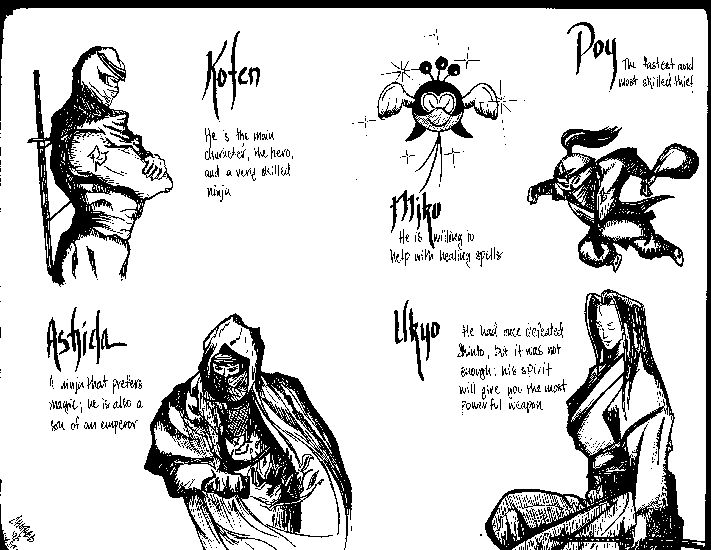 Kofen
He is the main
character, the hero,
and a very skilled
ninja
Miko
He is willing to
help with healing spells
Poy
The fastest and
most skilled thief
Ashida
A ninja that prefers
magic; he is also a
son of an emperor
Ukyo
He had once defeated
Shinto, but it was not
enough: his spirit
will give you the most
powerful weapon